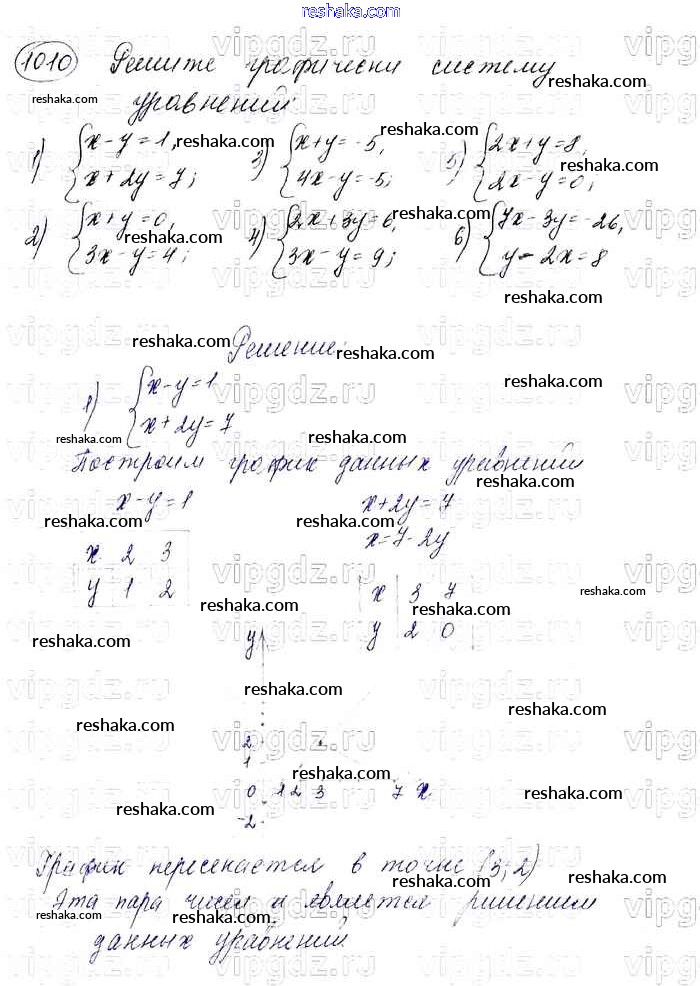 reshaka.com
1010 Решите графически систему
уравнений:
1) { x - y = 1, x + 2y = 7; 3) { x + y = -5, 4x - y = -5; 5) { 2x + y = 8, 2x - y = 0;
2) { x + y = 0, 3x - y = 4; 4) { 2x + 3y = 6, 3x - y = 9; 6) { 7x - 3y = -26, y - 2x = 8
Решение:
1) { x - y = 1
x + 2y = 7
Построим график данных уравнений
x - y = 1 x + 2y = 7
x = 7 - 2y
x 2 3
y 1 2
x 3 7
y 2 0
y
2
1
0 1 2 3 7 x
-2
График пересекается в точке (3; 2)
Эта пара чисел и является ришением
данных уравнений